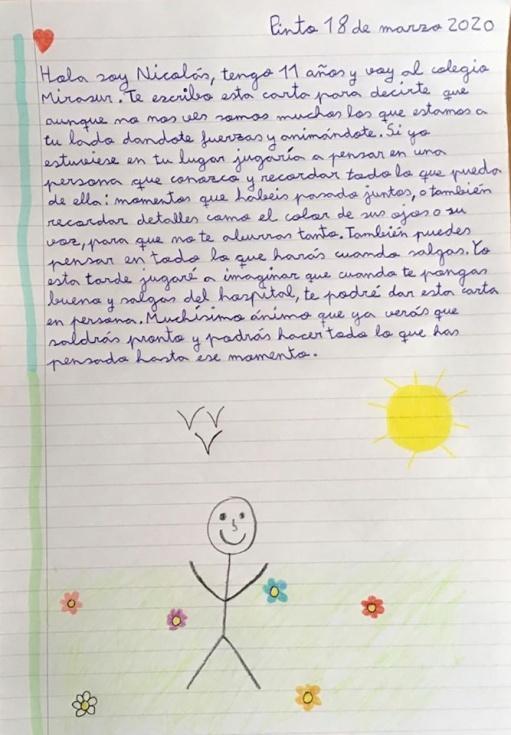 Pinto 18 de marzo 2020
Hola soy Nicolás, tengo 11 años y voy al colegio
Mirasur. Te escribo esta carta para decirte que
aunque no nos ves somos muchos los que estamos a
tu lado dandote fuerzas y animándote. Si yo
estuviese en tu lugar jugaría a pensar en una
persona que conozco y recordar todo lo que pueda
de ella: momentos que habéis pasado juntos, o también
recordar detalles como el color de sus ojos o su
voz, para que no te aburras tanto. También puedes
pensar en todo lo que harás cuando salgas. Yo
esta tarde jugaré a imaginar que cuando te pongas
bueno y salgas del hospital, te podré dar esta carta
en persona. Muchísimo ánimo que ya verás que
saldrás pronto y podrás hacer todo lo que has
pensado hasta ese momento.